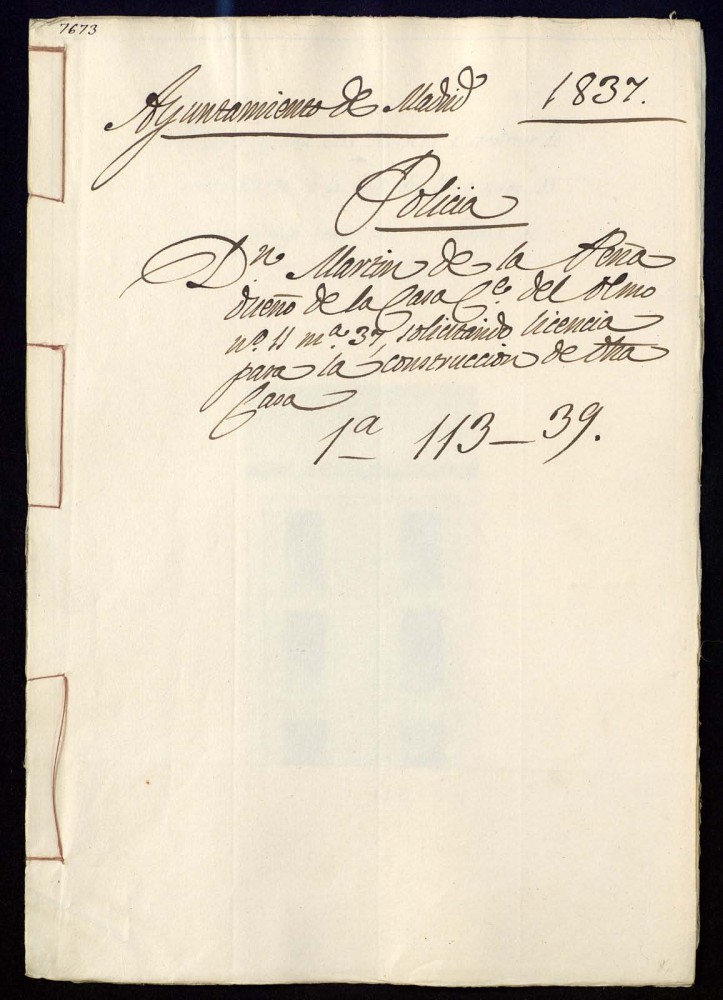 7673
Ayuntamiento de Madrid 1837.
Policia
Dn. Martin de la Peña
dueño de la Casa Ce. del Olmo
nº. 11 mª. 37, solicitando licencia
para la construccion de otra
Casa
1ª 113-39.